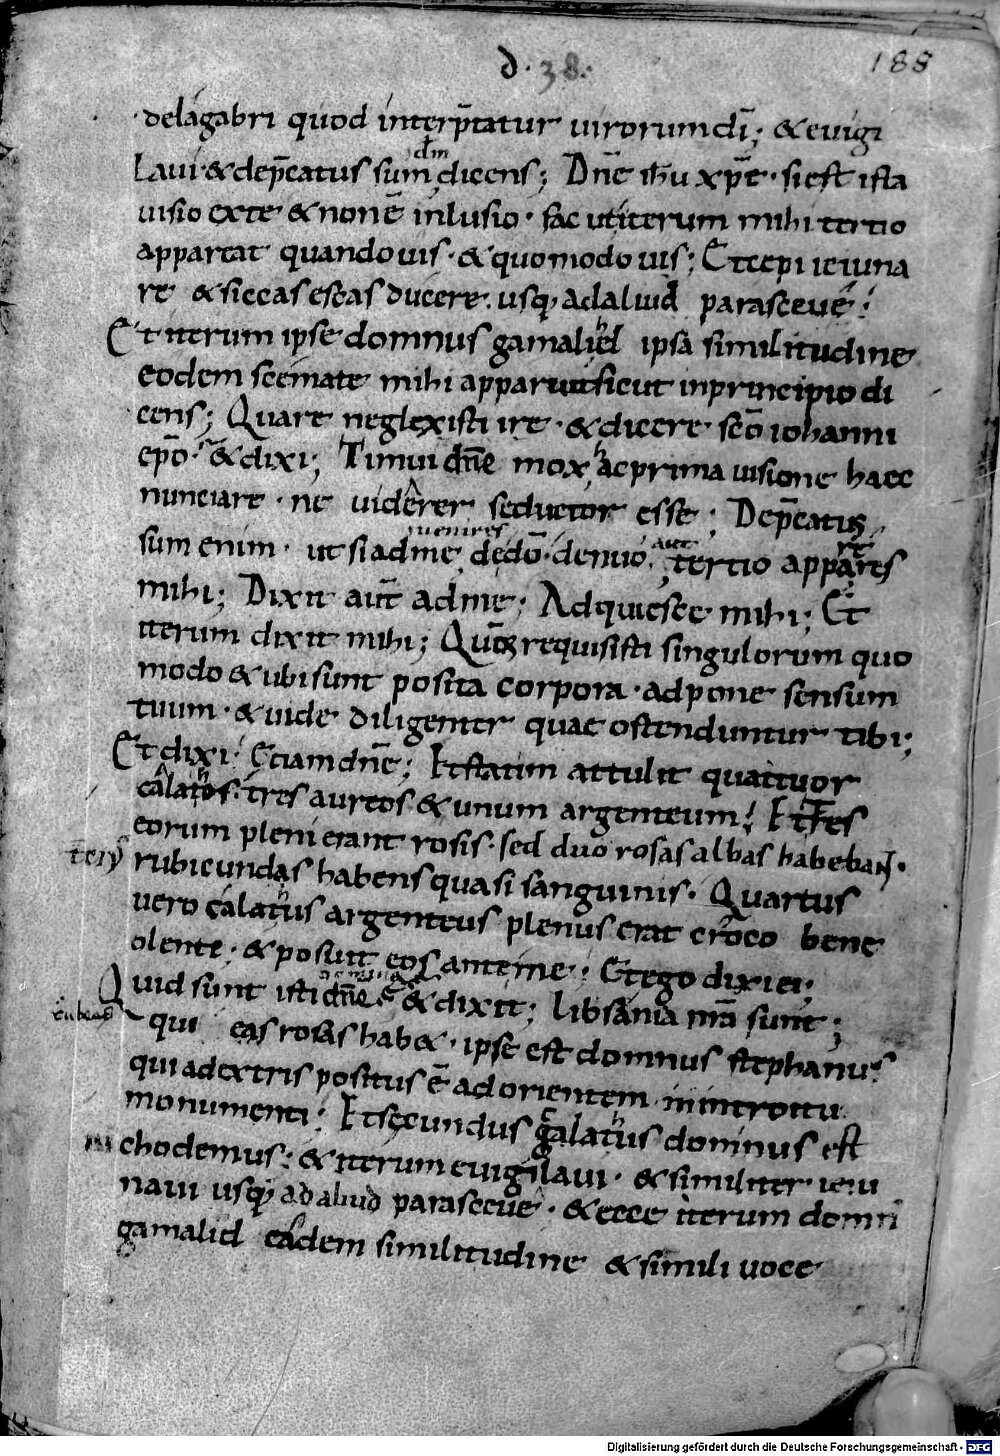 d. 38.
188
delagabri quod interp̄tatur uirorum dī; & euigi
laui & dep̄catus sum dm̄ dicens; Dnē ihū xp̄e si est ista
uisio ex te & non ē inlusio. fac ut iterum mihi tertio
appareat quando uis. & quomodo uis; Et cepi ieiuna
re & siccas escas ducere. usq; ad aliud parasceue;
Et iterum ipse domnus gamalihel ipsa similitudine
eodem scemate mihi apparuit sicut in principio di
cens; Quare neglexisti ire. & dicere scō iohanni
ep̄o. & dixi; Timui dn̄e mox hac prima uisione haec
nunciare. ne uiderer seductor esse; Dep̄catus
sum enim. ut si ad me uenires de dō. denuo. aut tertio appareres
mihi; Dixit aūt ad me; Adquiesce mihi; Et
iterum dixit mihi; requisisti singulorum quo
modo & ubi sunt posita corpora. adpone sensum
tuum. & uide diligenter quae ostenduntur tibi;
Et dixi; Etiam dn̄e; Et statim attulit quattuor
calathos. tres aureos & unum argenteum; Et tres
eorum pleni erant rosis. sed duo rosas albas habebant.
terī rubicundas habens quasi sanguinis. Quartus
uero calathus argenteus plenus erat croco bene
olente; & posuit eos ante me; Et ego dixi ei;
Quid sunt isti dn̄e & dixit; Libsania nrā sunt;
rubeas qui eas rosas hab&. ipse est domnus stephanus
qui ad extris positus ē ad orientem in introitu
monumenti; Et secundus calathus domnus est
nichodemus; & iterum euigilaui. & similiter ieiu
naui usq; ad aliud parasceue. & ecce iterum domni
gamaliel eadem similitudine & simili uoce
Digitalisierung gefördert durch die Deutsche Forschungsgemeinschaft - DFG